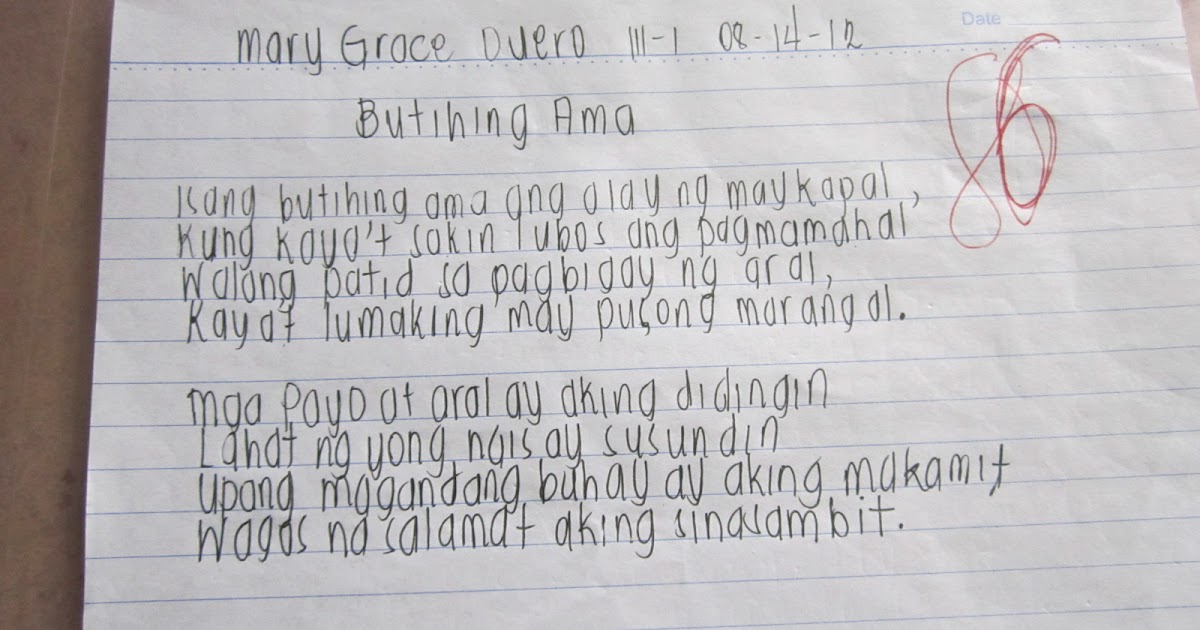 Date
Mary Grace Duero III-1 08-14-12
86
Butihing Ama
Isang butihing ama ang alay ng maykapal,
Kung kaya't sakin lubos ang pagmamahal
Walang patid sa pagbigay ng aral,
Kayat lumaking may pusong marangal.
Mga Payo at aral ay aking didingin
Lahat ng yong ngis ay susundin
Upang mggandang buhay ay aking makamit
Wagas na salamat aking sinasambit.